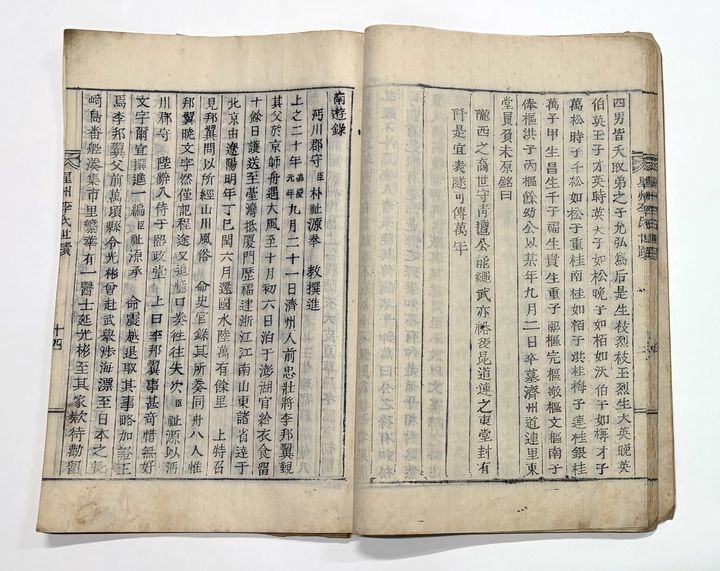 四男皆夭取弟之子允弘爲后是生枝烈枝王烈生大英晩英
伯英王子才英時英大子如松晩子如栢如沃伯子如樗才子
萬松時子千松如松子重桂南桂如栢子洪桂梅子蓮桂銀桂
萬子甲生昌生千子福生貴生重子彪樞完樞敬樞文樞南子
俸樞洪子丙樞餘幼公以某年九月二日卒墓濟州道連里東
堂員負未原銘曰
隴西之裔世守靑氈公能繩武亦裕後昆道連之東堂封有
阡是宜表隧可傳萬年
南遊錄
沔川郡守臣朴祉源奉 教撰進
上之二十年嘉慶元年九月二十一日濟州人前忠壯將李邦翼覲
其父於京師舟遇大風至十月初六日泊于澎湖官給衣食留
十餘日護送至臺灣抵厦門歷福建浙江江南山東諸省達于
北京由遼陽明年丁巳閏六月還國水陸萬有餘里 上特召
見邦翼問以所經山川風俗 命史官錄其所奏同舟八人惟
邦翼曉文字然僅記程途又追臆口奏徃徃失次臣祉源以沔
川郡守 陛辭入侍于熙政堂 上曰李邦翼事甚奇惜無好
文字爾宜撰進一編臣祉源承 命震越退取其事略加證正
焉李邦翼父前萬頃縣令光彬曾赴武擧涉海漂至日本之長
崎島番舶湊集市里繁華有一醫士延光彬至其家欵待勸留
星州李氏世蹟
十四